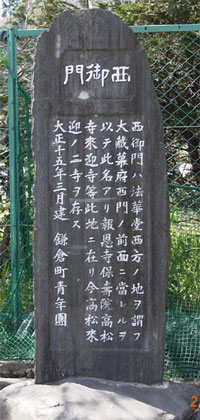 西御門
西御門ハ法華堂西方ノ地ヲ謂フ
大蔵幕府西門ノ前面ニ當レルヲ
以テ此名アリ報恩寺保壽院高松
寺來迎寺等此地ニ在リ今高松來
迎ノ二寺ヲ存ス
大正十五年三月建 鎌倉町青年團
2